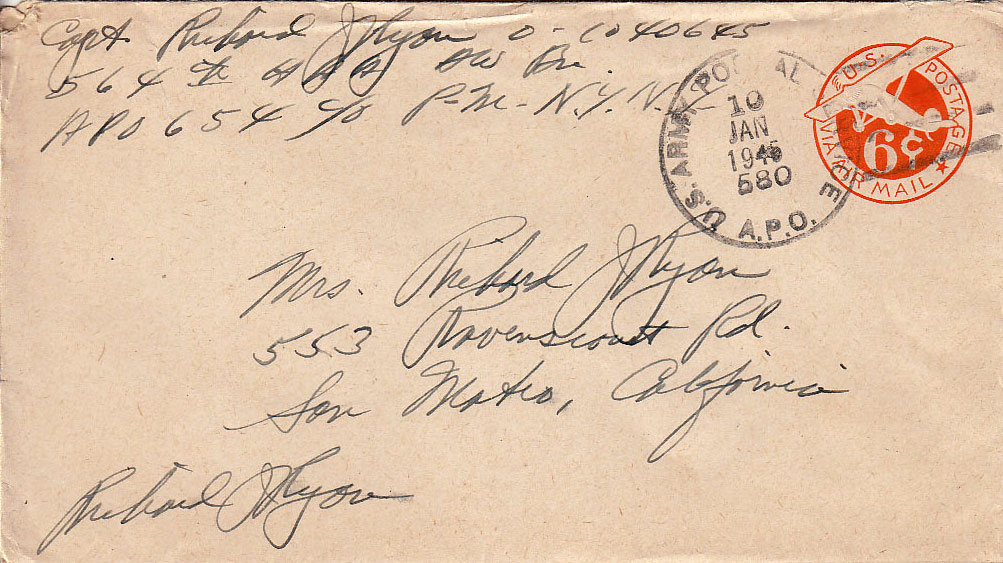 Capt. Richard J Ryon O-1040645
564th AAA AW Bn.
APO 654 c/o P.M. N.Y. N.Y.
U.S. ARMY POSTAL
10
JAN
1945
580
A.P.O.
U.S. POSTAGE
6¢
VIA AIR MAIL
Mrs. Richard J Ryon
553 Ravenscourt Rd.
San Mateo, California
Richard J Ryon